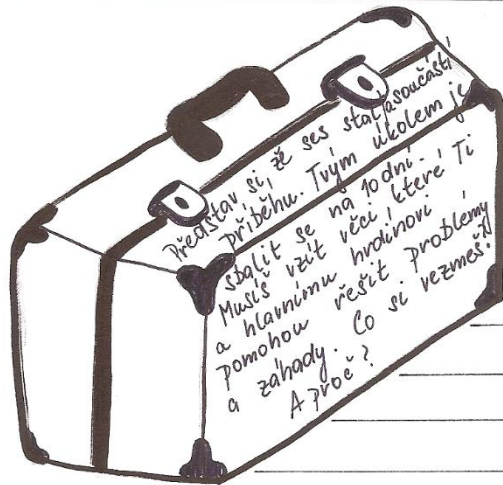 Představ si, že ses stal/a součástí
příběhu. Tvým úkolem je
sbalit se na 10 dní.
Musíš vzít věci, které Ti
a hlavnímu hrdinovi
pomohou řešit problémy
a záhady. Co si vezmeš?
A proč?